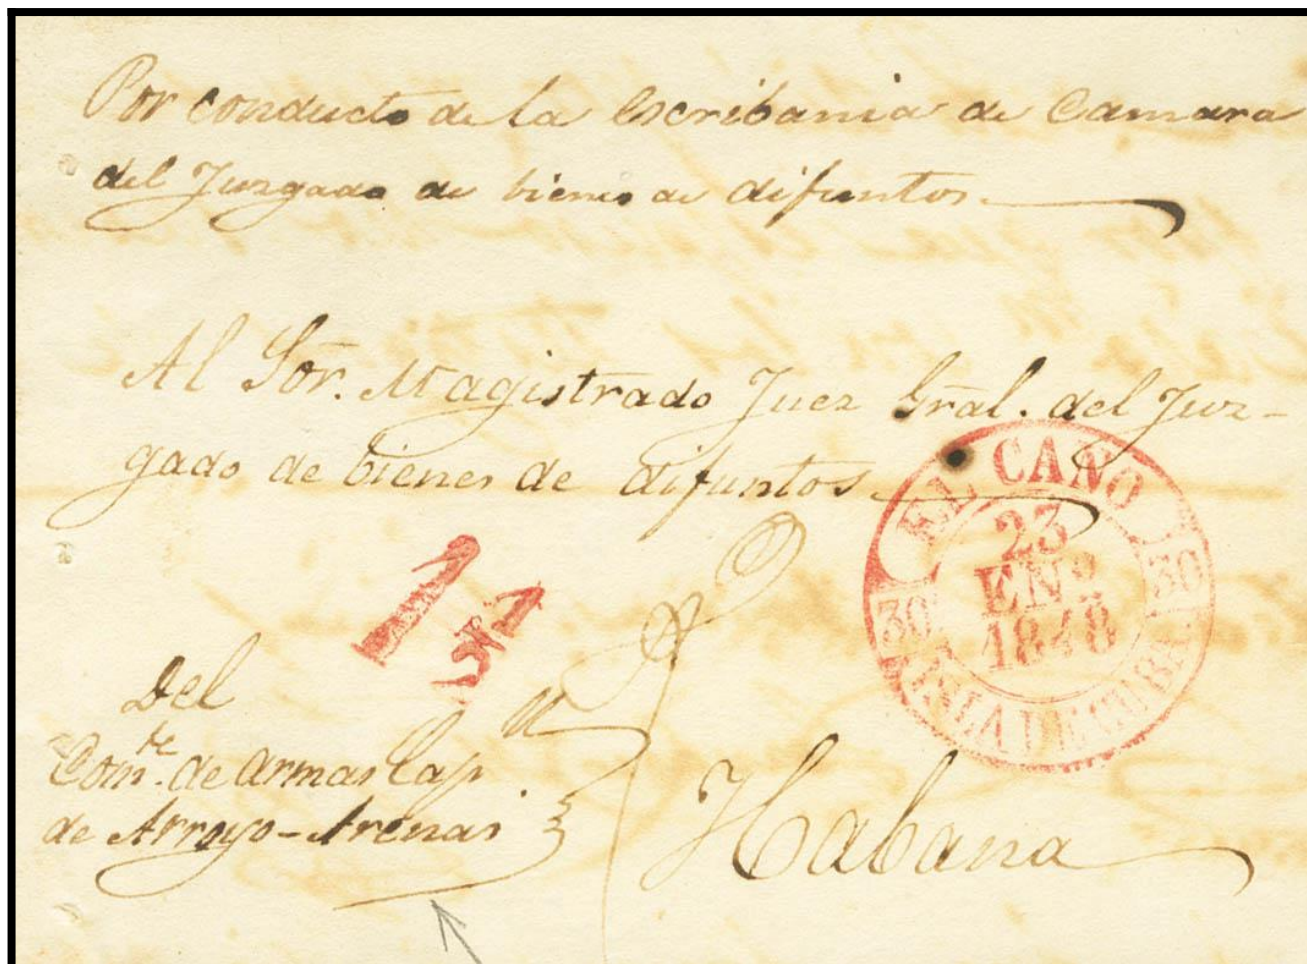 Por conducto de la Escribania de Camara
del Juzgado de bienes de difuntos.
Al Sōr. Magistrado Juez Grāl. del Juz-
gado de bienes de difuntos.
EL CANO
23
ENº
1848
30 30
ISLA DE CUBA.
1 1/2
Del
Comte. de armas Cap.n
de Arroyo-Arenas
Habana